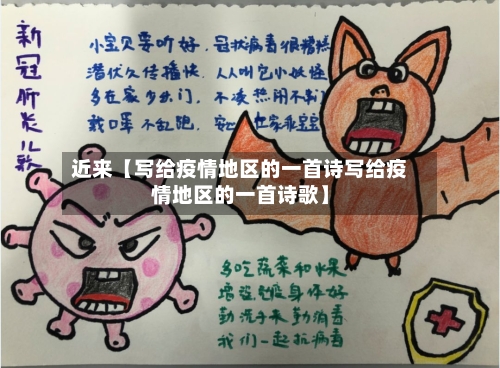 新冠肺炎儿歌
小宝贝要听好，冠状病毒很糟糕
潜伏久传播快，人人叫它小妖怪
多在家少出门，不凑热闹不
戴口罩不乱跑，在家乖宝宝
近来【写给疫情地区的一首诗写给疫
情地区的一首诗歌】
多吃蔬菜和水果
增强免疫身体好
勤洗手来勤消毒
我们一起抗病毒